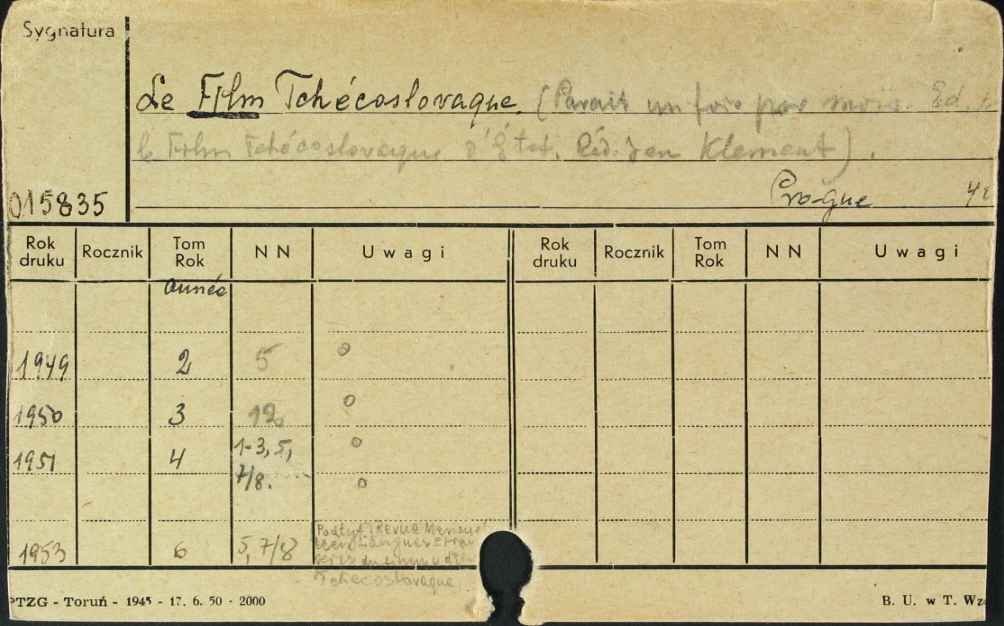 Sygnatura
Le Film Tchécoslovaque. (Parait un fois par mois. Ed.
le Film Tchécoslovaque d'État. Réd. Jan Klement).
015835
Prague
Rok druku Rocznik Tom Rok NN Uwagi Rok druku Rocznik Tom Rok NN Uwagi
année
1949 2 5 o
1950 3 12 o
1951 4 1-3, 5, o
7/8. o
1953 6 5, 7/8
Podtyt. Revue Mensuel
Tchécoslovaque
PTZG - Toruń - 1945 - 17. 6. 50 - 2000
B. U. w T. Wz